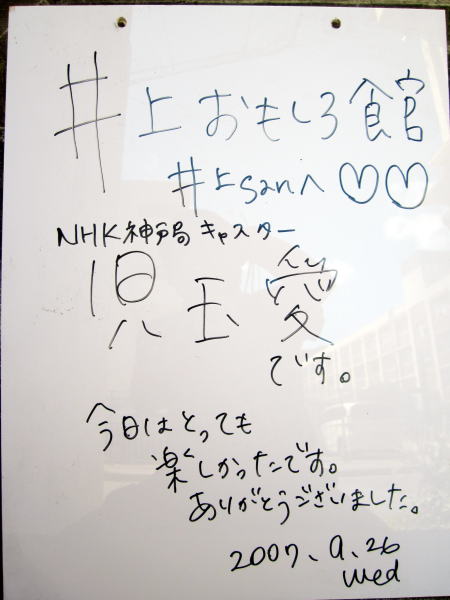 井上おもしろ館
井上sanへ♡♡
NHK神戸局キャスター
児玉愛
です。
今日はとっても
楽しかったです。
ありがとうございました。
2007、9、26
wed